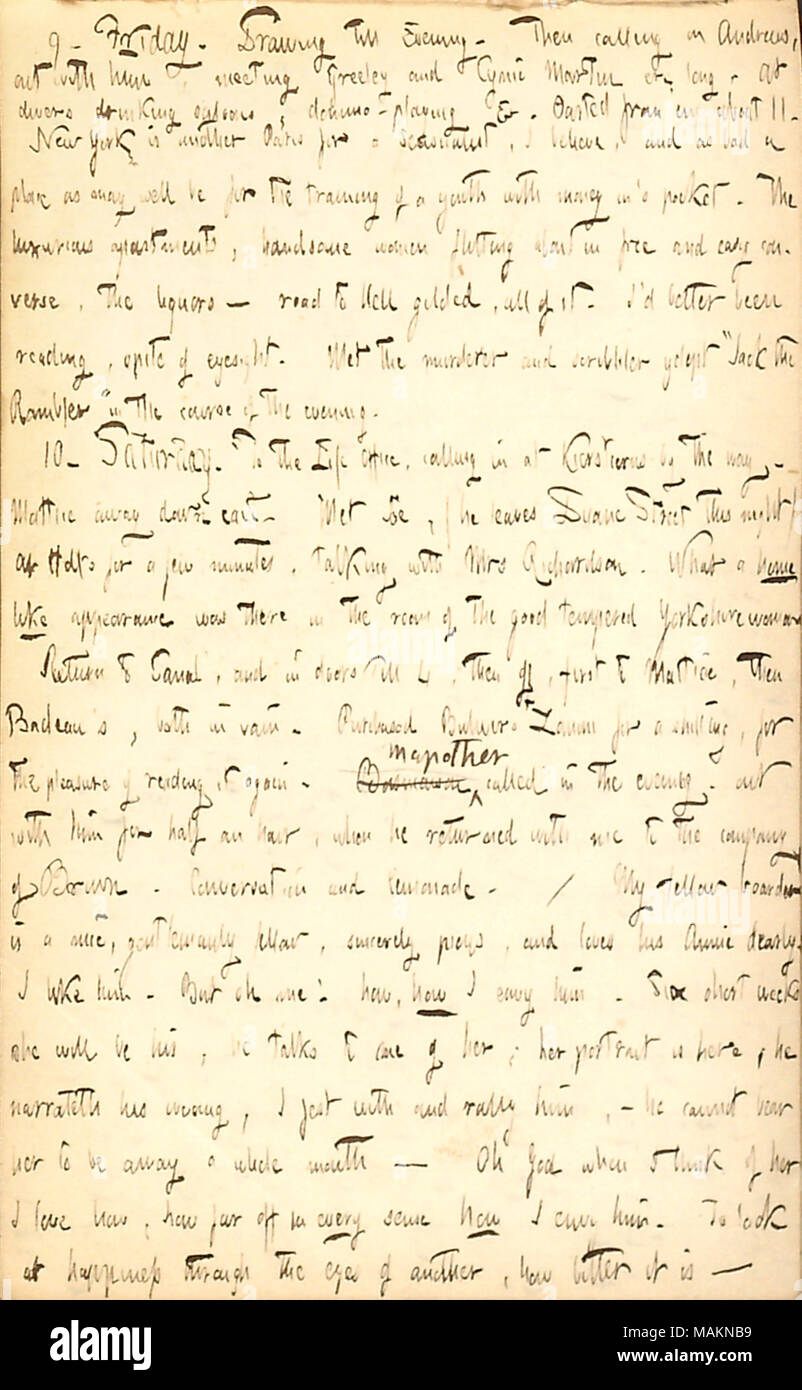 9 - Friday. Drawing till Evening. Then calling on Andrews,
out with him, meeting Greeley and Cynic Martin &c, long. At
divers drinking saloons, domino-playing &c. Parted from 'em about 11.
New York is another Paris for a sensualist, I believe, and as bad a
place as may well be for the training of a youth with money in's pocket. The
luxurious apartments, handsome women flitting about in free and easy con-
verse, the liquors — road to Hell gilded, all of it. I'd better been
reading, spite of eyesight. Met the murderer and scribbler yclept "Jack the
Rambler" in the course of the evening.
10 - Saturday. To the office, calling in at by the way,
Mattie away down east. Met Joe, (he leaves Duane Street this night)
At Holts for a few minutes, talking with Mrs Richardson. What a home
like appearance was there in the room of the good tempered Yorkshirewoman
Return to Canal, and in doors till 4, then off, first to Mattice, then
Badeau's, both in vain. Purchased Bulwers Zanoni for a shilling, for
the pleasure of reading it again. Mapother called in the evening, out
with him for half an hour, when he returned with me to the company
of Brown. Conversation and lemonade. / My fellow boarder
is a nice, gentlemanly fellow, sincerely pious, and loves his Annie dearly.
I like him. But oh me! how, how I envy him. Six short weeks
she will be his, he talks to me of her, her portrait is here, he
narrateth his wooing, I jest with and rally him, - he cannot bear
her to be away a whole month — Oh God when I think of her
I love how, how far off in every sense how I envy him. To look
at happiness through the eyes of another, how bitter it is —
alamy
Image ID: MAKNB9
www.alamy.com